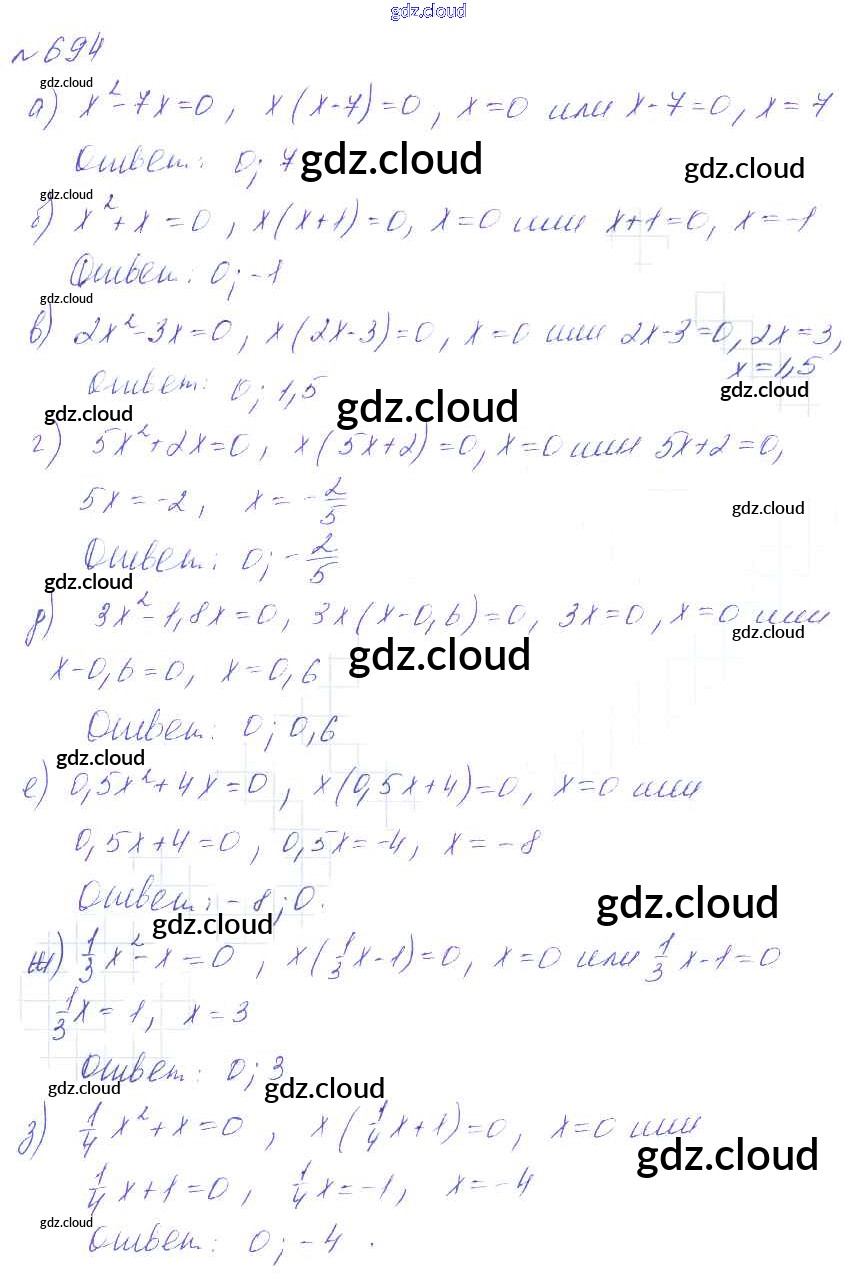 gdz.cloud
№ 694
gdz.cloud
а) x² - 7x = 0, x(x-7) = 0, x = 0 или x - 7 = 0, x = 7
Ответ: 0; 7 gdz.cloud gdz.cloud
gdz.cloud
б) x² + x = 0, x(x+1) = 0, x = 0 или x+1 = 0, x = -1
Ответ: 0; -1
gdz.cloud
в) 2x² - 3x = 0, x(2x-3) = 0, x = 0 или 2x-3 = 0, 2x = 3,
x = 1,5
Ответ: 0; 1,5 gdz.cloud
gdz.cloud gdz.cloud
г) 5x² + 2x = 0, x(5x+2) = 0, x = 0 или 5x+2 = 0,
5x = -2, x = -2/5 gdz.cloud
Ответ: 0; -2/5
gdz.cloud
д) 3x² - 1,8x = 0, 3x(x-0,6) = 0, 3x = 0, x = 0 или
gdz.cloud
x-0,6 = 0, x = 0,6 gdz.cloud
Ответ: 0; 0,6
gdz.cloud
е) 0,5x² + 4x = 0, x(0,5x+4) = 0, x = 0 или
0,5x+4 = 0, 0,5x = -4, x = -8
Ответ: -8; 0. gdz.cloud
gdz.cloud
ж) 1/3x² - x = 0, x(1/3x-1) = 0, x = 0 или 1/3x-1 = 0
1/3x = 1, x = 3
Ответ: 0; 3
gdz.cloud gdz.cloud
з) 1/4x² + x = 0, x(1/4x+1) = 0, x = 0 или
gdz.cloud
1/4x+1 = 0, 1/4x = -1, x = -4
gdz.cloud
Ответ: 0; -4.